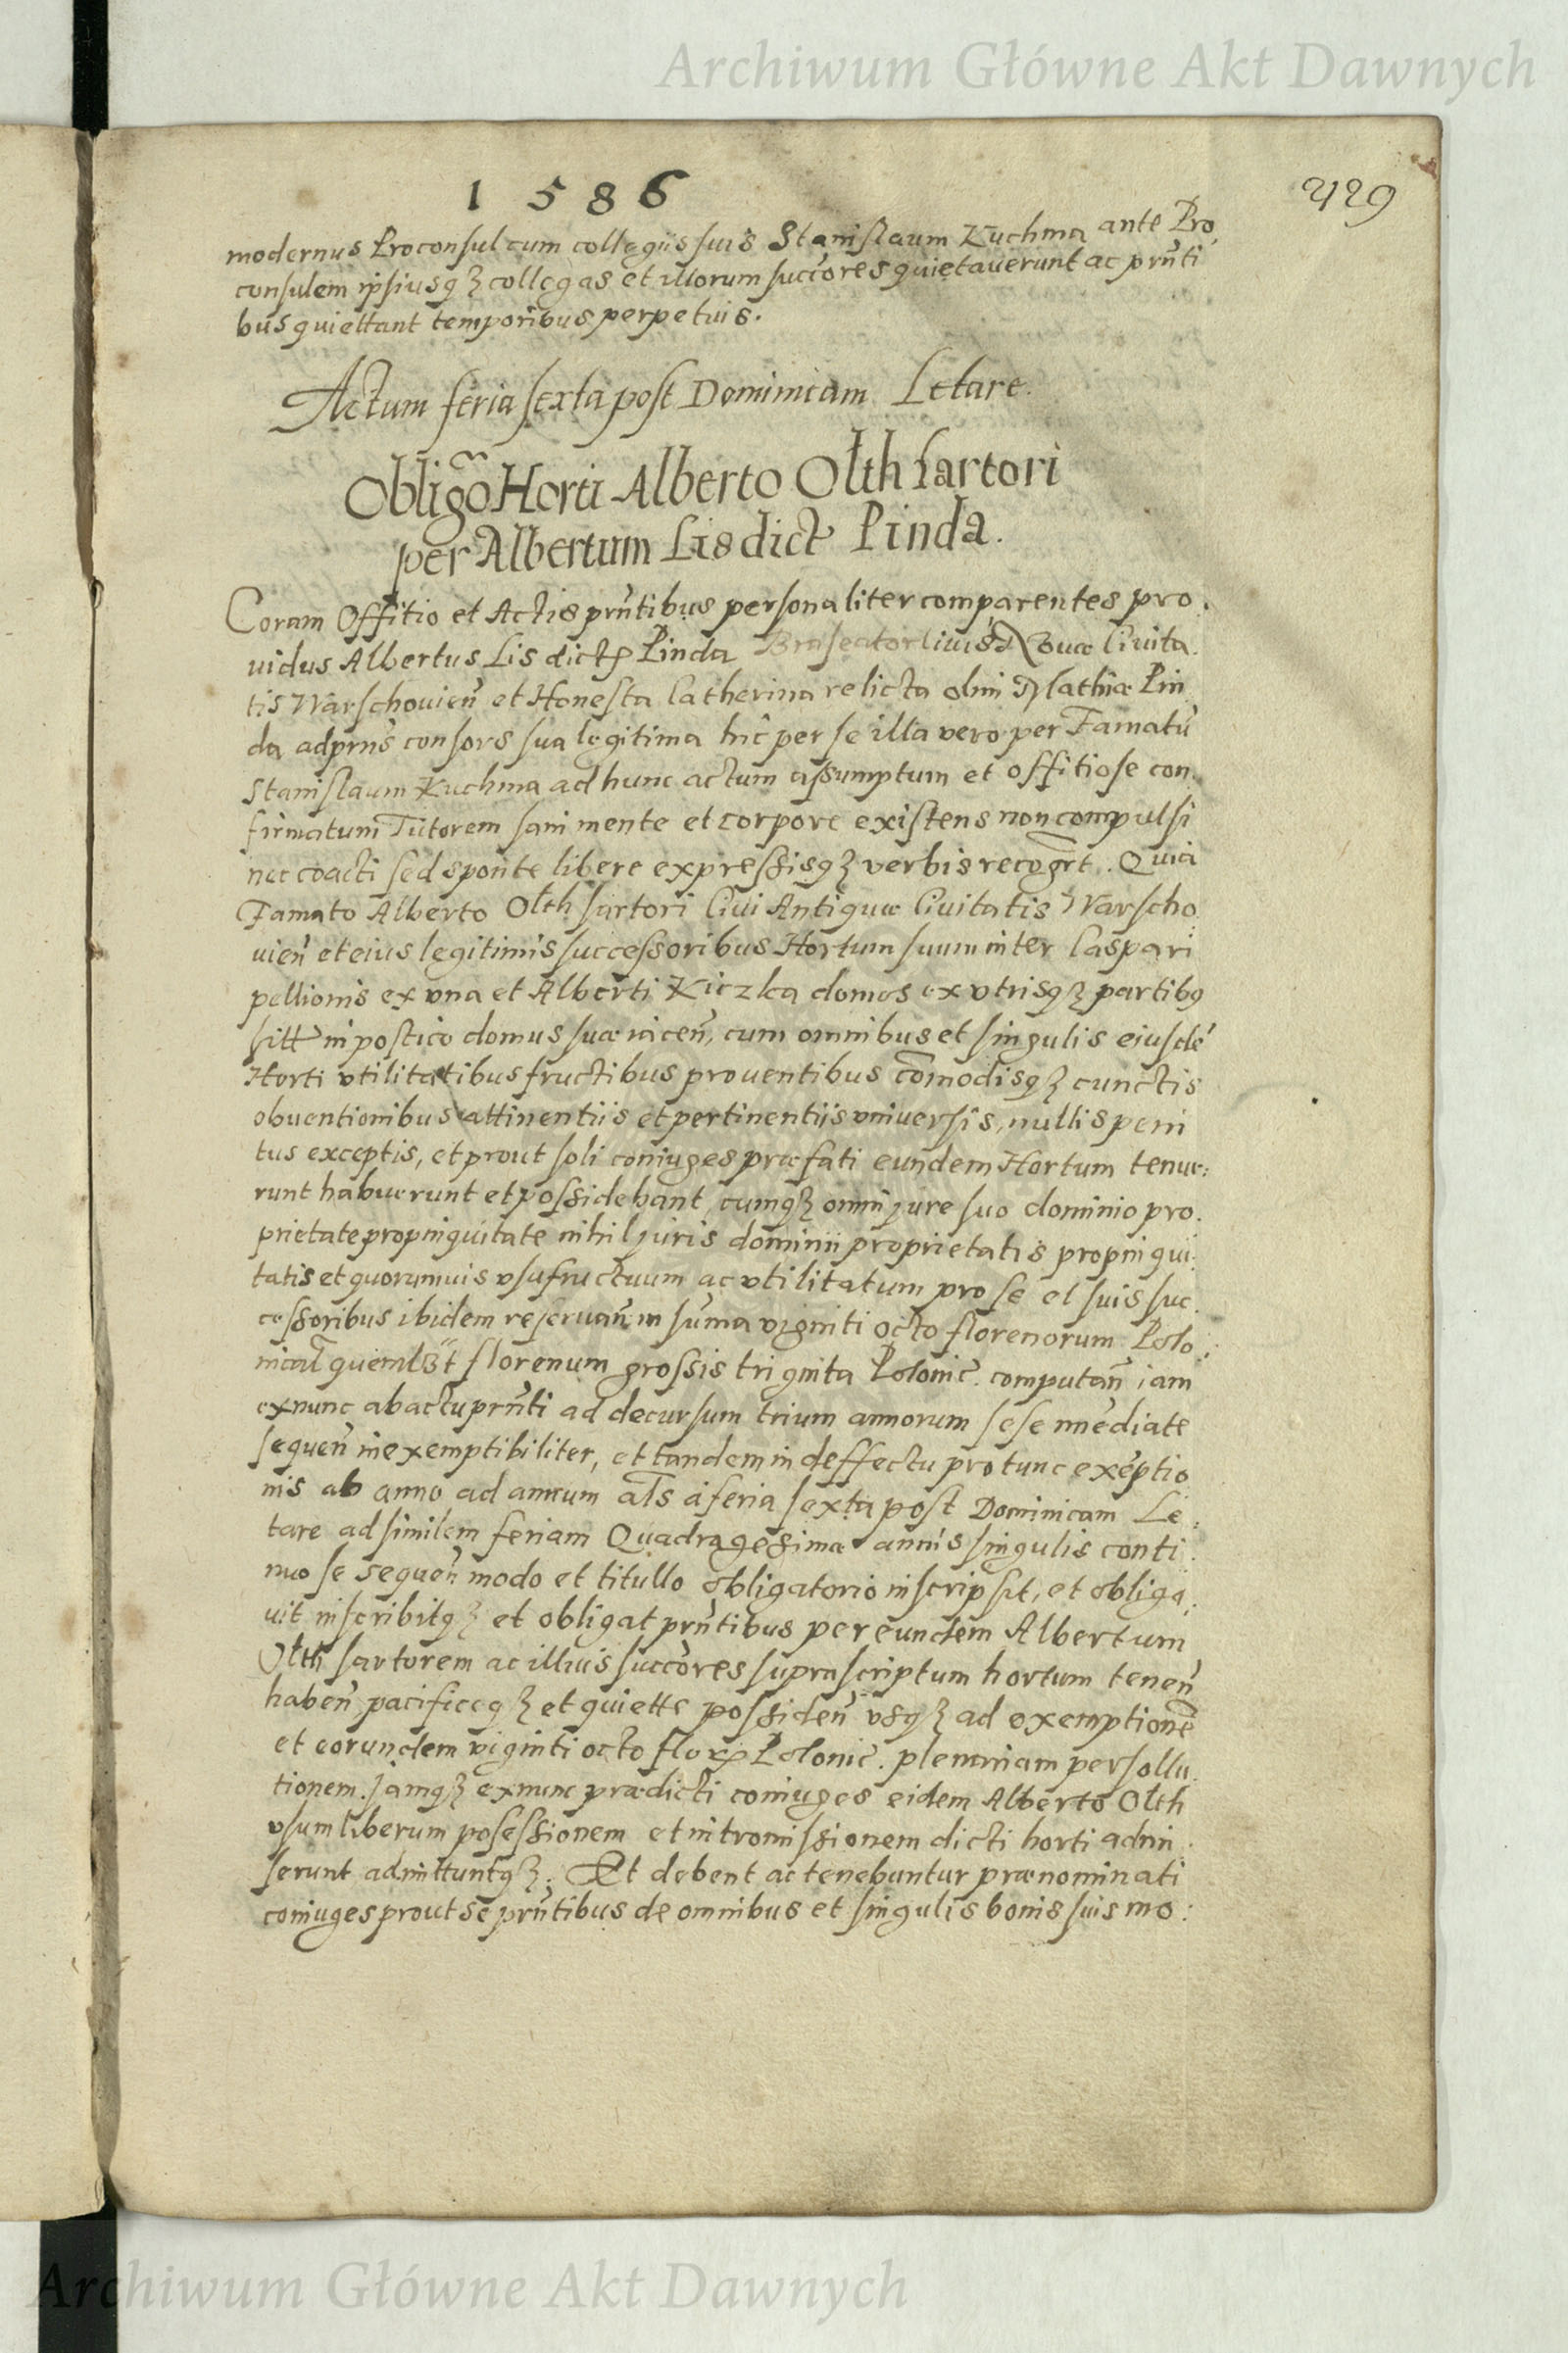 Archiwum Główne Akt Dawnych
1586
429
modernus Proconsul cum collegiis suis Stanislaum Kuchma ante Pro
consulem ipsiusqz collegas et illorum succores quietauerunt ac prnti
bus quiettant temporibus perpetuis.
Actum feria sexta post Dominicam Letare.
Obligo Horti Alberto Olth Sartori
per Albertum Lis dict Pinda.
Coram Offitio et Actis prntibus personaliter comparentes pro.
uidus Albertus Lis dict Pinda Braseator Ciuis Nouæ Ciuita.
tis Warschouien et Honesta Catherina relicta olim Mathiæ Pin
da adprns consors sua legitima hic per se illa vero per Famatu
Stanislaum Kuchma ad hunc actum assumptum et offitiose con.
firmatum Tutorem sani mente et corpore existens non compulsi
nec coacti sed sponte libere expressisqz verbis recogrt. Quia
Famato Alberto Olth sartori Ciui Antiquæ Ciuitatis Warscho
uien et eius legitimis successoribus Hortum suum inter Caspari
pellionis ex vna et Alberti Kiczka domos ex vtrisqz partibq
sitt in postico domus suæ iacen, cum omnibus et singulis eiusde
Horti vtilitatibus fructibus prouentibus comodisqz cunctis
obuentionibus attinentiis et pertinentiis vniuersis, nullis peni
tus exceptis, et prout soli coniuges præfati eundem Hortum tenue:
runt habuerunt et possidebant, cumqz omni jure suo dominio pro.
prietate propinquitate nihil juris dominii proprietatis propinqui.
tatis et quorumuis vsufructuum ac vtilitatum pro se et suis suc.
cessoribus ibidem reseruan, in suma viginti octo florenorum Polo:
nical quemlbt florenum grossis triginta Polonic. computan iam
exnunc ab actu prnti ad decursum trium annorum sese imediate
sequen inexemptibiliter, et tandem in deffectu pro tunc exeptio
nis ab anno ad annum als a feria sexta post Dominicam Le:
tare ad similem feriam Quadragesimæ annis singulis conti.
nuo se sequen modo et titullo obligatorio inscripsit, et obliga:
uit inscribitqz et obligat prntibus per eundem Albertum
Olth sartorem ac illius succores suprascriptum hortum tenen
haben pacificeqz et quiette possiden vsqz ad exemptione
et eorundem viginti octo flor Polonic. plenariam persollu.
tionem. jamqz exnunc prædicti coniuges eidem Alberto Olth
vsum liberum posessionem et intromissionem dicti horti admi
serunt admittuntqz. Et debent ac tenebuntur prænominati
coniuges prout se prntibus de omnibus et singulis bonis suis mo:
Archiwum Główne Akt Dawnych